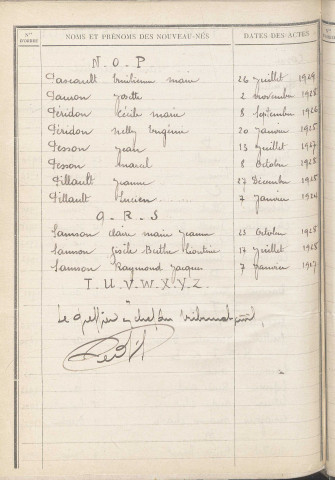 Nos D'ORDRE NOMS ET PRÉNOMS DES NOUVEAU-NÉS DATES DES ACTES
N.O.P
Pascault Emilienne Marie 26 Juillet 1929
Pamon Josette 2 Novembre 1928
Péridon Cécile Marie 8 Septembre 1926
Péridon Nelly Eugénie 20 Janvier 1925
Pesson Jean 13 Juillet 1927
Pesson Marcel 8 Octobre 1925
Pillault Jeanne 27 Décembre 1925
Pillault Lucien 7 Janvier
Q.R.S
Samson Claire Marie Jeanne 23 Octobre 1925
Samson Gisèle Berthe Léontine 17 Juillet 1925
Samson Raymond Jacques 7 Janvier 1927
T.U.V.W.X.Y.Z.
Le Greffier en chef du Tribunal civil